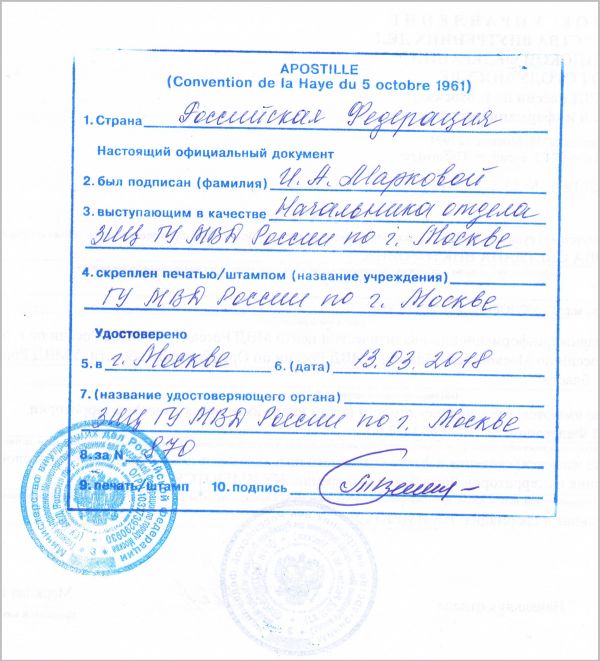 APOSTILLE
(Convention de la Haye du 5 octobre 1961)
1. Страна Российская Федерация
Настоящий официальный документ
2. был подписан (фамилия) И. А. Марковой
3. выступающим в качестве Начальника отдела
ЗИЦ ГУ МВД России по г. Москве
4. скреплен печатью/штампом (название учреждения)
ГУ МВД России по г. Москве
Удостоверено
5. в г. Москве 6. (дата) 13.03.2018
7. (название удостоверяющего органа)
ЗИЦ ГУ МВД России по г. Москве
8. за N 870
9. печать/штамп 10. подпись
Министерство внутренних дел Российской Федерации